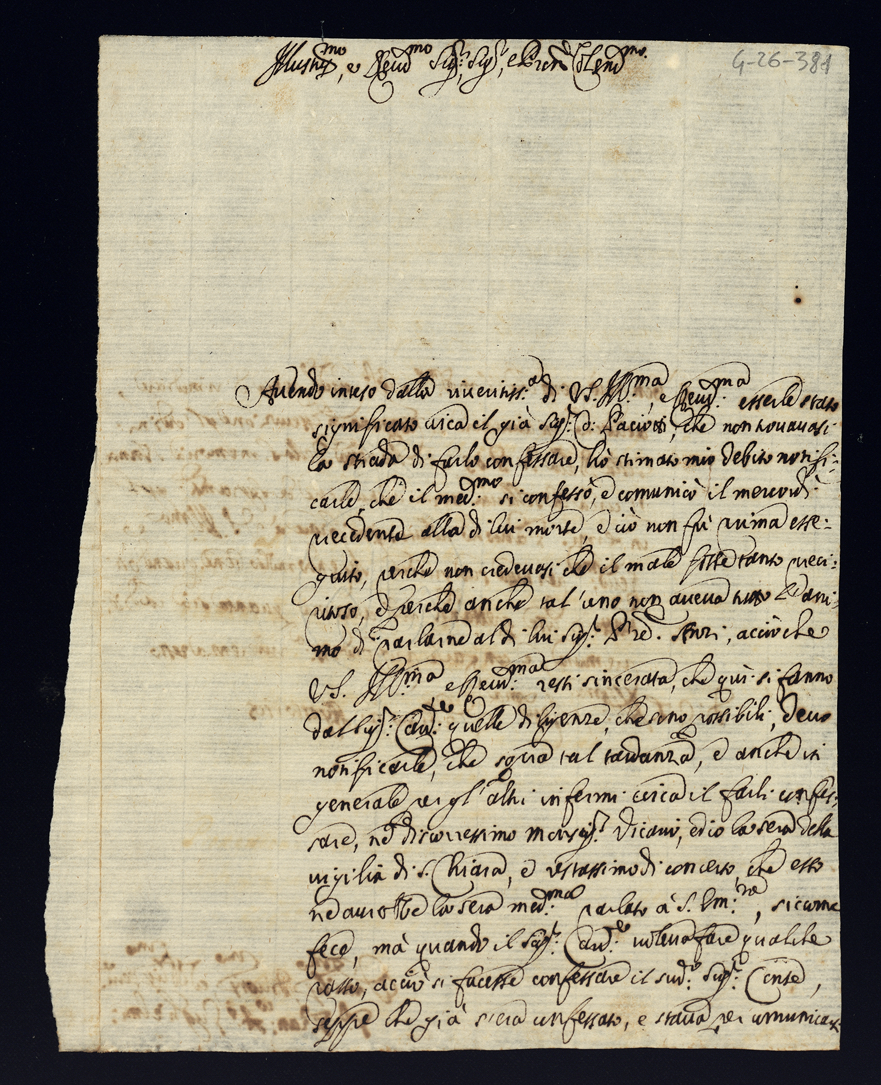 G-26-381
Illustr.mo, e Reud.mo Sig.r, Sig.r, e Pron Colend.mo
Auendo inteso dalla riueritiss.a di VS. Ill.ma, e Reud.ma esserle stato
significato circa il già Sig.r D: che non trouauasi
la strada di farlo confessare, hò stimato mio debito notifi:
carle, che il med.mo si confessò, e comunicò il mercordì
precedente alla di lui morte, e ciò non fù prima esse:
guito, perche non credeuasi che il male fosse tanto preci:
pitoso, e perche anche tal'uno non aueua tutto l'ani:
mo di parlarne al di lui Sig.r acciò che
VS. Ill.ma e Reud.ma resti sincerata, che quì si fanno
dal Sig.r Card.le quelle diligenze, che sono possibili, deuo
notificarle, che sopra tal tardanza, e anche in
generale per gl'altri infermi circa il farli confes:
sare, ne discorressimo Monsig.r Vicario, ed io la sera della
vigilia di S. Chiara, e restassimo di concerto, che esso
ne aurebbe la sera med.ma parlato à S. Em.za, si come
fece, mà quando il Sig.r Card.le voleua fare qualche
passo, acciò si facesse confessare il sud.o Sig.r Conte,
seppe che già s'era confessato, e staua per comunicar: